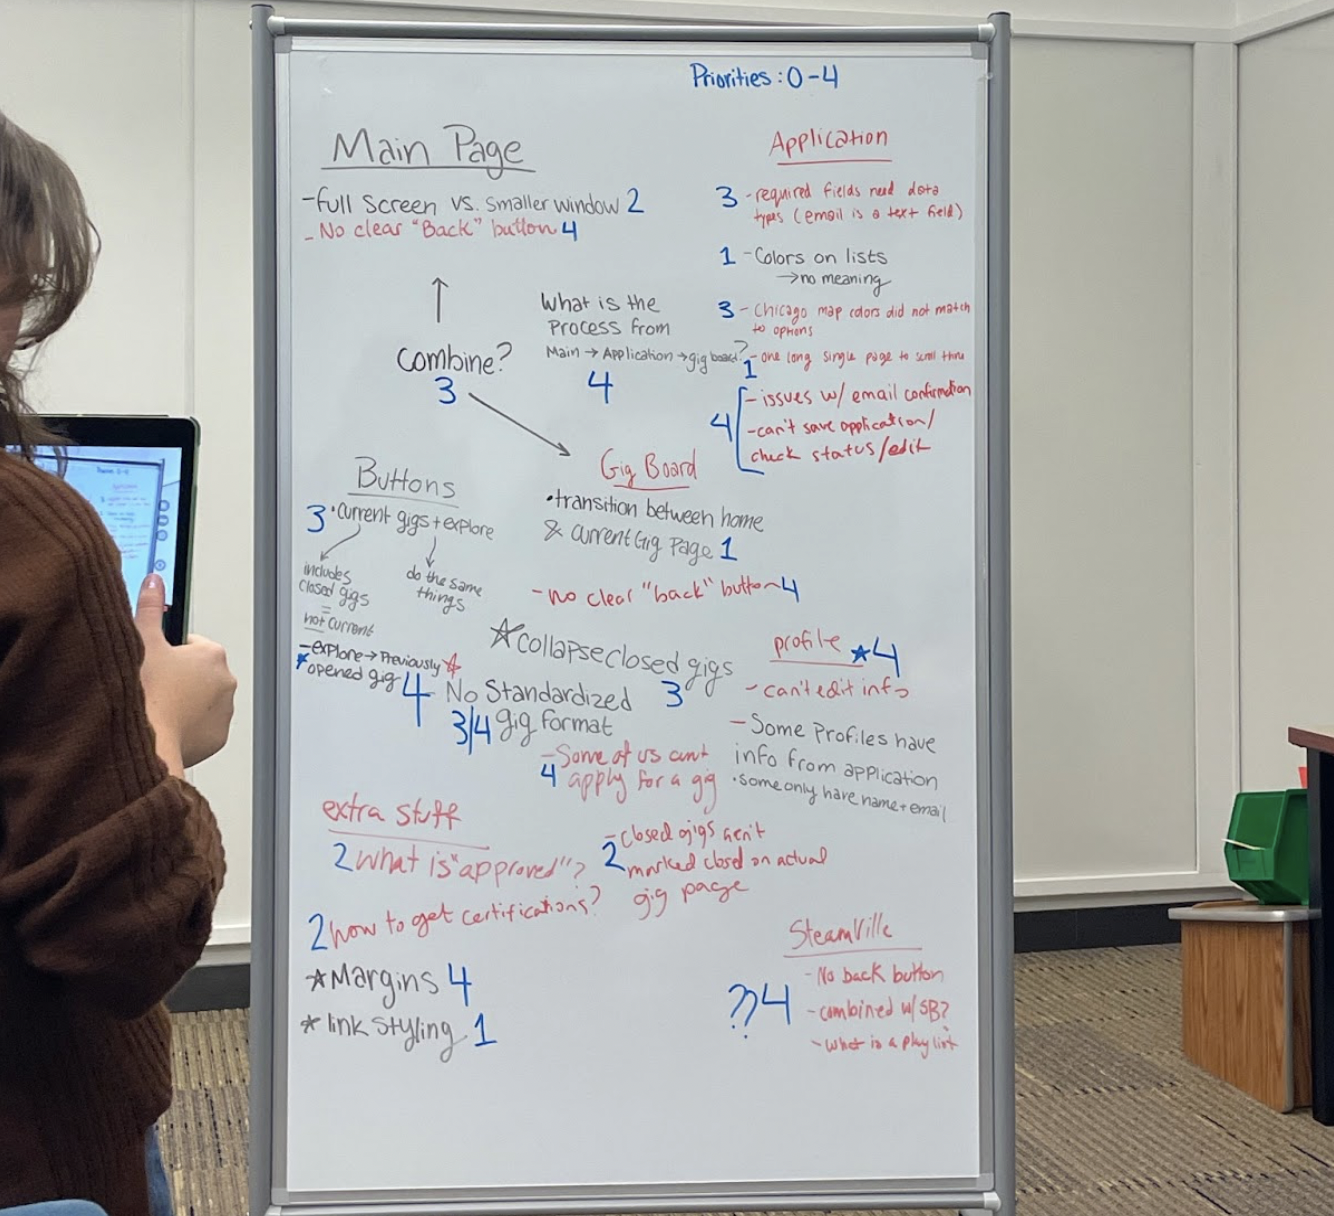 Priorities: 0-4
Main Page
-full screen vs. smaller window 2
- No clear "Back" button 4
Combine?
3
What is the
Process from
Main → Application → gig board?
4
Application
3 - required fields need data
types (email is a text field)
1 - Colors on lists
→ no meaning
3 - Chicago map colors did not match
to options
1 - one long single page to scroll thru
4 - issues w/ email confirmation
- can't save application/
check status/edit
Buttons
3 · current gigs + explore
includes
closed gigs
=
not current
do the same
things
- explore → Previously
opened gig 4
Gig Board
· transition between home
& current Gig Page 1
- no clear "back" button 4
☆ collapse closed gigs
3
No Standardized
3/4 gig format
- Some of us can't
4 apply for a gig
2 - closed gigs aren't
marked closed on actual
gig page
profile ★ 4
- can't edit info
- Some Profiles have
info from application
· some only have name + email
extra stuff
2 what is "approved"?
2 how to get certifications?
* Margins 4
* link styling 1
SteamVille
??4
- No back button
- combined w/ SB?
- what is a playlist